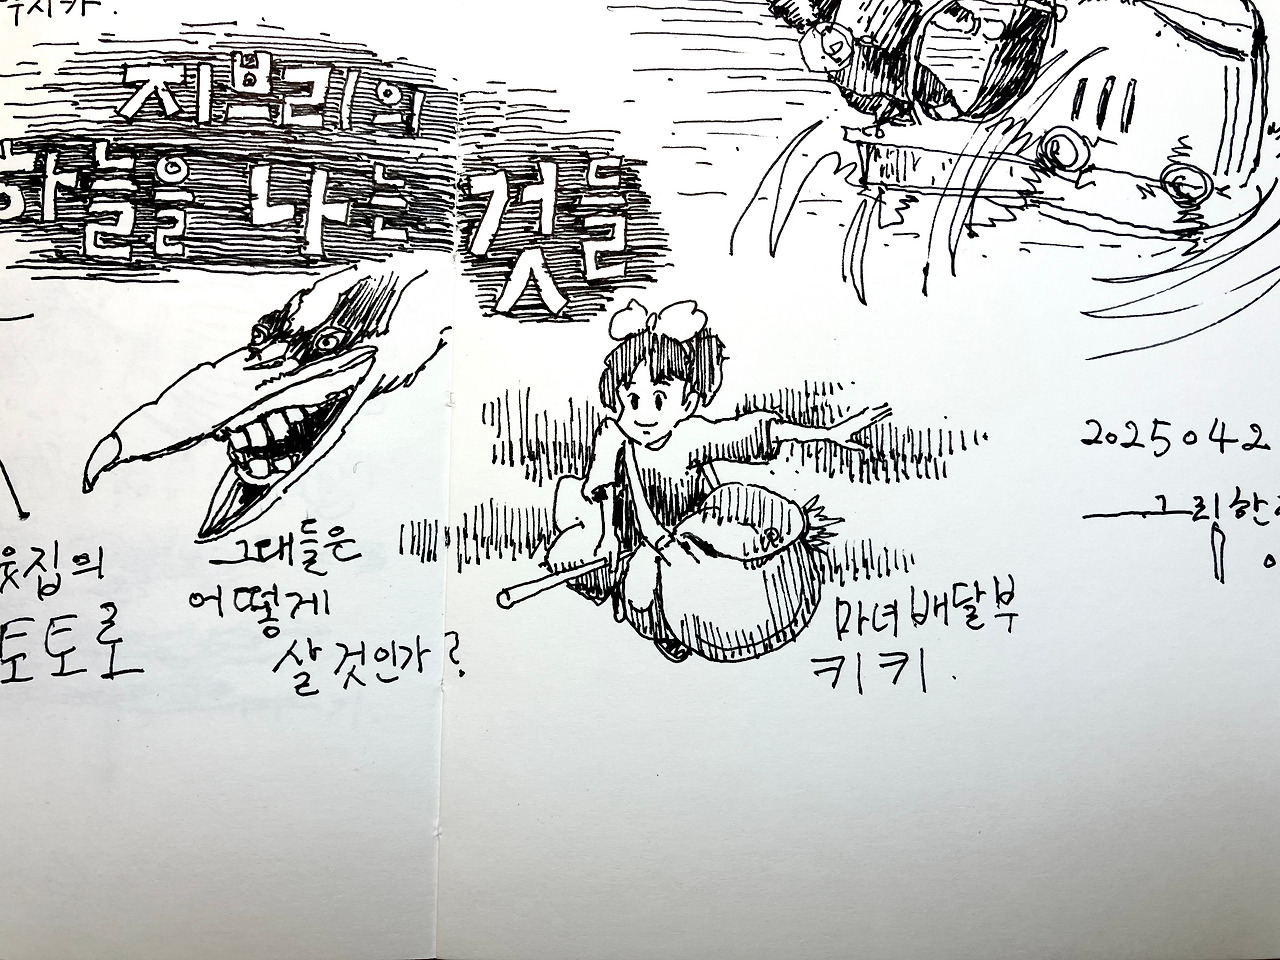 우시카.
지브리의
하늘을 나는 것들
웃집의
토토로
그대들은
어떻게
살 것인가?
마녀 배달부
키키.
2025042
그림한